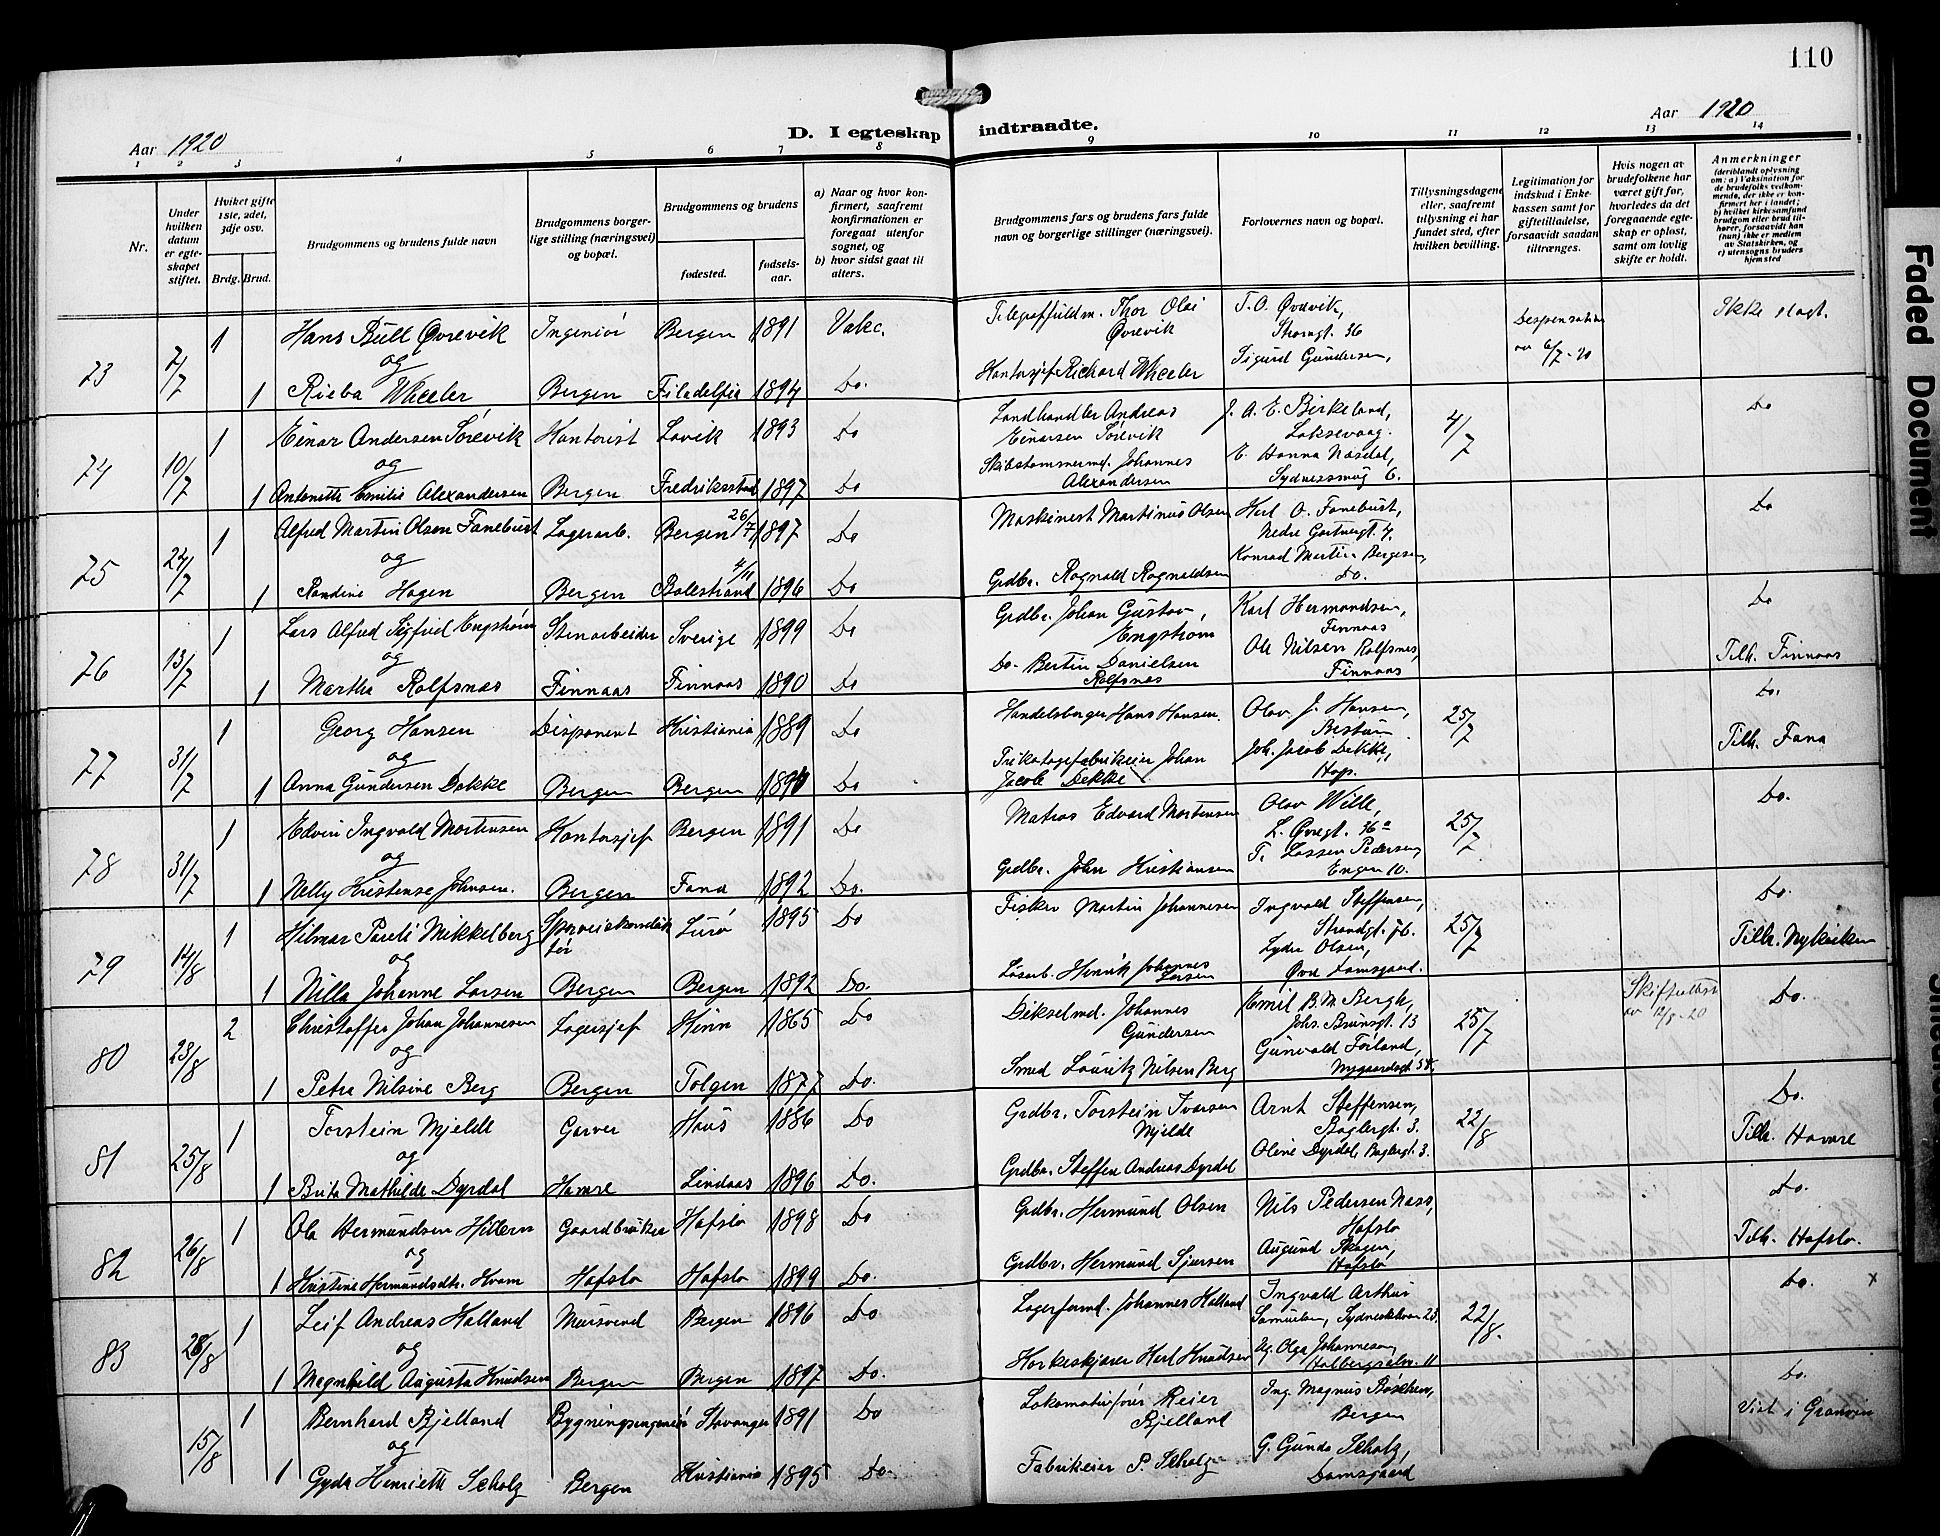 110
Aar 1920
D. I egteskap indtraadte.
Aar 1920
1 2 3 4 5 6 7 8 9 10 11 12 13 14
Nr.
Under hvilken datum er egteskapet stiftet.
Hviket gifte 1ste, 2det, 3dje osv.
Brdg. Brud.
Brudgommens og brudens fulde navn
Brudgommens borgerlige stilling (næringsvei) og bopæl.
Brudgommens og brudens
fødested.
fødselsaar.
a) Naar og hvor konfirmert, saafremt konfirmationen er foregaat utenfor sognet, og
b) hvor sidst gaat til alters.
Brudgommens fars og brudens fars fulde navn og borgerlige stillinger (næringsvei).
Forlovernes navn og bopæl.
Tillysningsdagene eller, saafremt tillysning ei har fundet sted, efter hvilken bevilling.
Legitimation for indskud i Enkekassen samt for giftetilladelse, forsaavidt saadan tiltrænges.
Hvis nogen av brudefolkene har været gift før, hvorledes da det foregaaende egteskap er opløst, samt om lovlig skifte er holdt.
Anmerkninger (deriblandt oplysning om: a) Vaksination for de brudefolks vedkommende, der ikke er konfirmert her i landet; b) hvilket kirkesamfund brudgom eller brud tilhører, forsaavidt han (hun) ikke er medlem av Statskirken, og c) utensogns bruders hjemsted
73 7/7 1 Hans Bull Øvrevik Ingeniør Bergen 1891 Vakc. Telegraffuldm. Thor Olai Øvrevik T. O. Øvrevik, Strangt. 36 Despensation av 6/7-20 Ikke slegt.
og
1 Rieba Wheeler Bergen Filadelfia 1894 Do. Kontorsjef Richard Wheeler Sigurd Gundersen,
74 10/7 1 Einar Andersen Sörevik Kontorist Lavik 1893 Do Landhandler Andreas Einarsen Sörevik J. A. E. Birkeland, Laksevaag. 4/7 Do
og
1 Antonette Emilie Alexandersen Bergen Fredriksstad 1897 Do Skibstømmermd. Johannes Alexandersen E. Hanna Nasdal, Sydnessmug 6.
75 24/7 1 Alfred Martin Olsen Fanebust Lagerarb. Bergen 26/7 1897 Do Maskinest Martinus Olsen Herl. O. Fanebust, Nedre Gartnergt. 4, Do
og
1 Randine Hagen Bergen Balestrand 4/11 1896 Do Grdbr. Ragnald Ragnaldsen Konrad Martin Bergesen, Do.
76 13/7 1 Lars Alfred Sigfred Engström Stenarbeider Sverige 1899 Do Grdbr. Johan Gustav, Engström Karl Hermandsen, Finnaas Do
og
1 Martha Rolfsnes Finnaas Finnaas 1890 Do Do. Bertin Danielsen Rolfsnes Ole Nilsen Rolfsnes, Finnaas Tilh. Finnaas
77 31/7 1 Georg Hansen Disponent Kristiania 1889 Do Handelsborger Hans Hansen. Olav J. Hansen, Bestun 25/7 Do.
og
1 Anna Gundersen Dekke Bergen Bergen Do Trikotagefabrikeier Johan Jacob Dekke Joh. Jacob Dekke, Hop. Tilh. Fana
78 31/7 1 Edvin Ingvald Mortensen Kontorsjef Bergen 1891 Do Matros Edvard Mortensen Olav Wille, L. Øvregt. 36a 25/7 Do.
og
1 Nelly Kristense Johnsen. Bergen Fana 1892 Do. Grdbr. John Kristiansen T. Lassen Pedersen, Engen 10.
79 14/8 1 Hilmar Pauli Mikkelborg Sporveiskonduktør Lurø 1895 Do Fisker Martin Johannesen Ingvald Steffensen, Strandgt. 76. 25/7 Do.
og
1 Nilla Johanne Larsen Bergen Bergen 1892 Do. Løsarb. Henrik Johannes Larsen Lyder Olsen, Øvre Damsgaard. Tilh. Nykirken
80 28/8 2 Christoffer Johan Johannesen Lagersjef Hinn 1865 Do Dikselmd. Johannes Gundersen Emil B. M. Bergh, Johs. Brunsgt. 13 25/7 Skifteattest av 12/8-20 Do.
og
1 Petra Nilsine Berg Bergen Tolgen 1877 Do. Smed Lauritz Nilsen Berg Gunvald Förland, Nygaardsgt. 58.
81 25/8 1 Torstein Mjelde Garver Haus 1886 Do Grdbr. Torstein Ivarsen Mjelde Arnt Steffensen, Baglergt. 3. 22/8 Do.
og
1 Brita Mathilde Dyrdal Hamre Lindaas 1896 Do. Grdbr. Steffen Andreas Dyrdal Oline Dyrdal, Baglergt. 3. Tilh. Hamre
82 26/8 1 Ola Hermundsen Hillern Gaardbruker Hafslo 1898 Do Grdbr. Hermund Olsen Nils Pedersen Nass, Hafslo Do.
og
1 Kristine Hermundsdtr. Kvam Hafslo Hafslo 1899 Do. Grdbr. Hermund Sjursen Augund Skagen, Hafslo Tilh. Hafslo.
83 28/8 1 Leif Andreas Halland Mursvend Bergen 1896 Do Lagerformd. Johannes Halland Ingvald Arthur Samuelsen, Sydneskleven 23. 22/8. Do. x
og
1 Magnhild Augusta Knudsen Bergen Bergen 1897 Do. Korkeskjærer Herl. Knudsen Ag. Olga Johannesen, Holbergsalm. 11
15/8 1 Bernhard Bjelland Bygningsingeniør Stavanger 1891 Do Lokomotivfører Reier Bjelland Ing. Magnus Böschen, Bergen Do.
og
1 Gyda Henriette Scholz Bergen Kristiania 1895 Do. Fabrikeier P. Scholz G. Gunda Scholz, Damsgaard Viet i Granvin
Faded Document